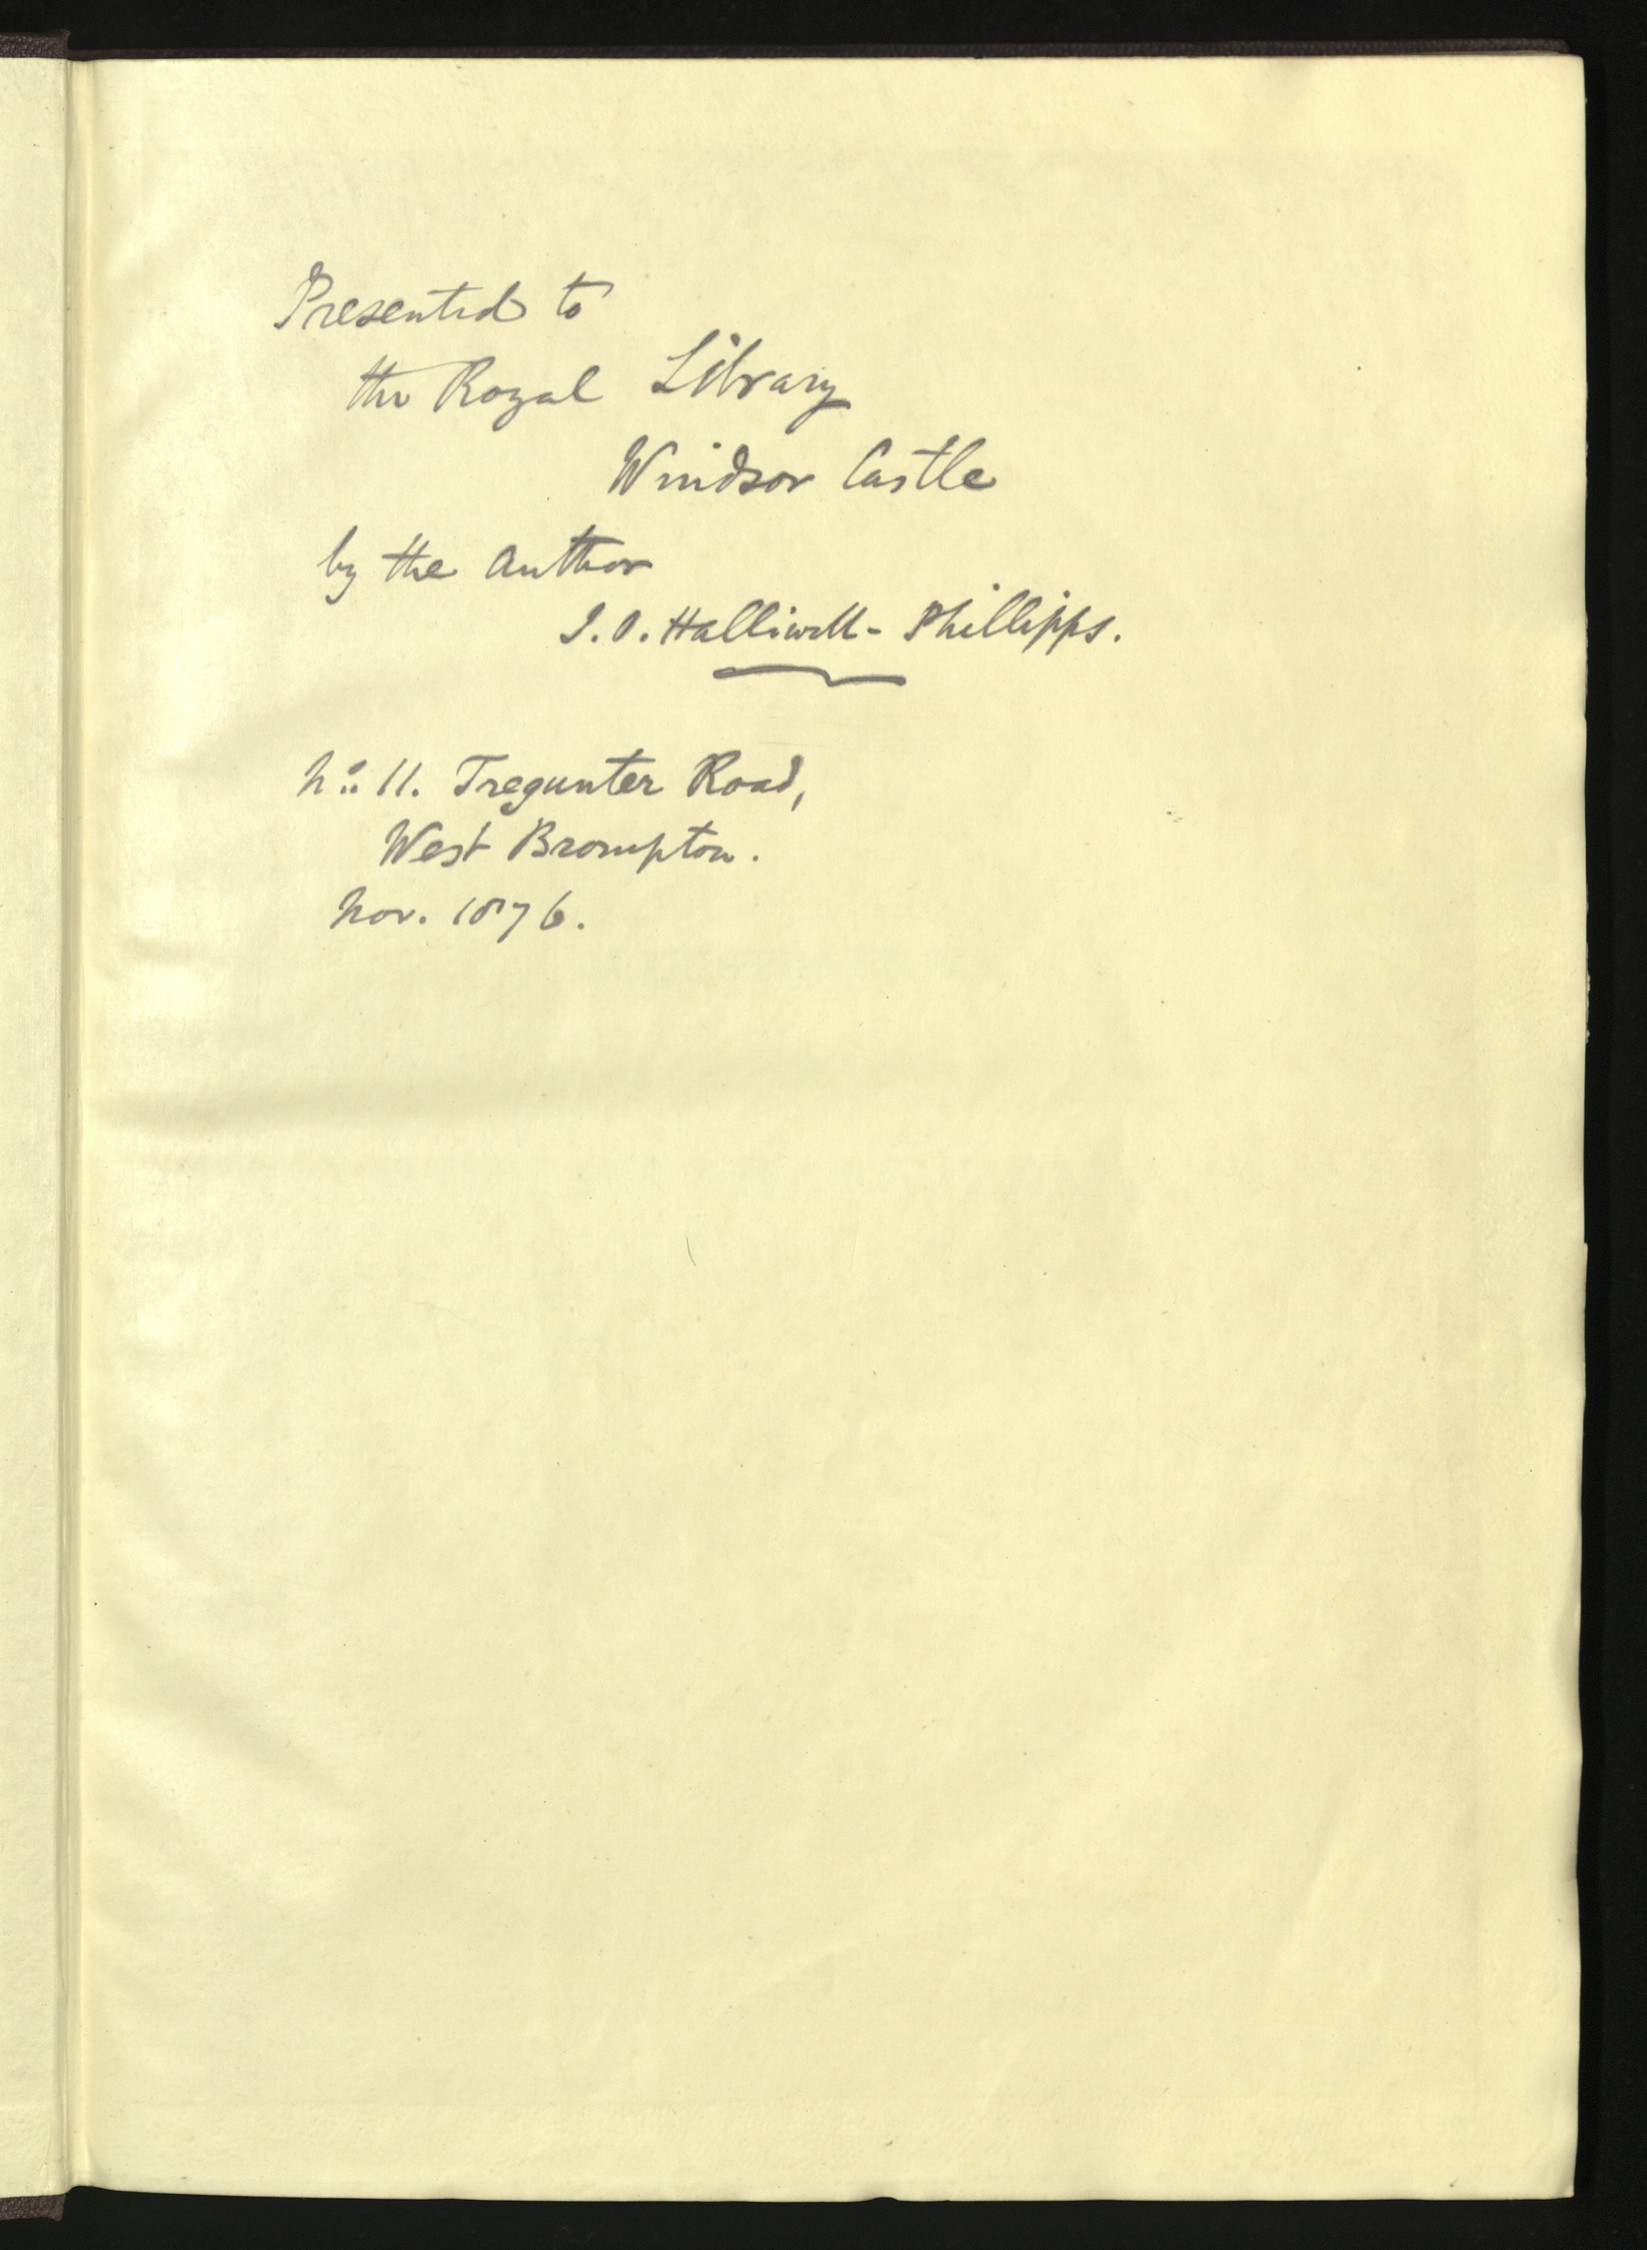 Presented to
the Royal Library
Windsor Castle
by the Author
J.O. Halliwell-Phillipps.
No. 11. Tregunter Road,
West Brompton.
Nov. 1876.